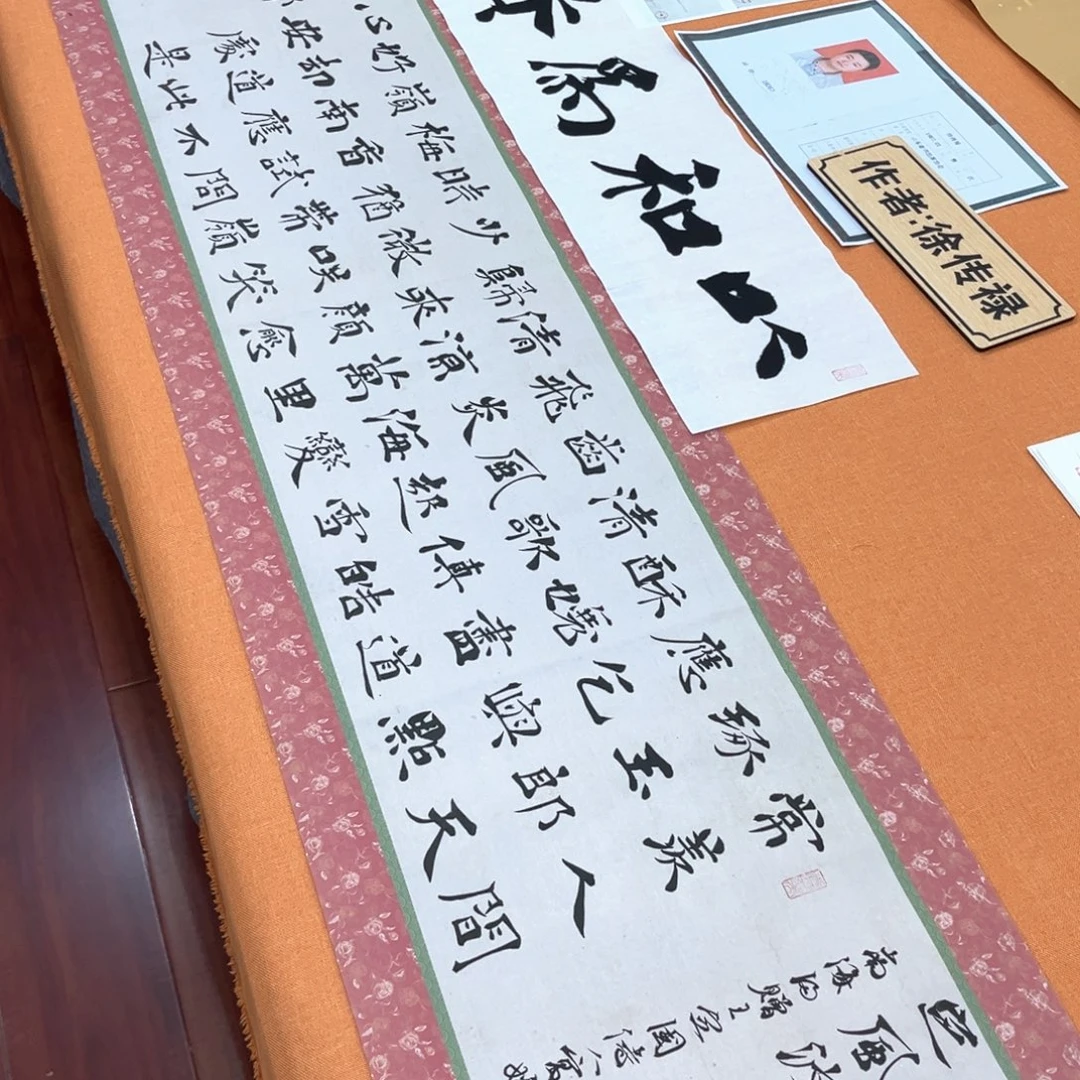 作者:徐传禄
以和為
定風波
南海歸贈王定國侍人寓娘
常羨人間
琢玉郎天
應乞與點
酥孃盡道
清歌傳皓
齒風起雪
飛炎海變
清涼萬里
歸來顏愈
少微笑笑
時猶帶嶺
梅香試問
嶺南應不
好却道此
心安處是